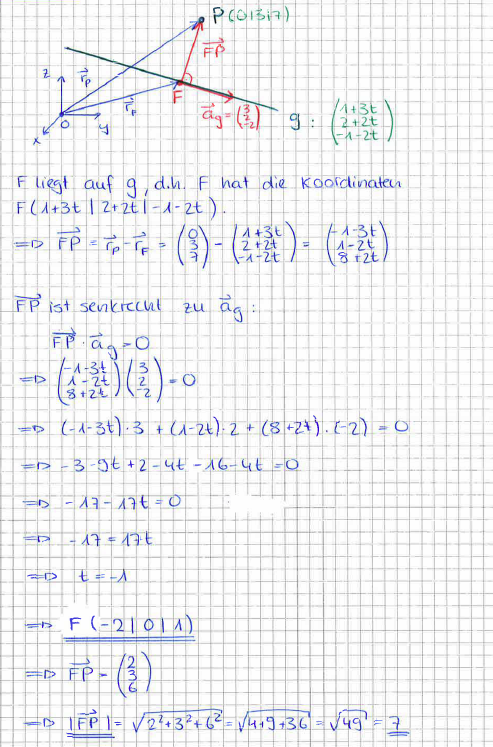 P(0|3|7)
→FP
z
→r_P
→r_F
F
→a_g = (3 2 -2)
g : (1+3t 2+2t -1-2t)
0
y
x
F liegt auf g, d.h. F hat die Koordinaten
F(1+3t | 2+2t | -1-2t).
⇒ →FP = →r_P - →r_F = (0 3 7) - (1+3t 2+2t -1-2t) = (-1-3t 1-2t 8+2t)
→FP ist senkrecht zu →a_g :
→FP · →a_g = 0
⇒ (-1-3t 1-2t 8+2t) (3 2 -2) = 0
⇒ (-1-3t)·3 + (1-2t)·2 + (8+2t)·(-2) = 0
⇒ -3-9t+2-4t-16-4t=0
⇒ -17-17t=0
⇒ -17=17t
⇒ t=-1
⇒ F (-2|0|1)
⇒ →FP = (2 3 6)
⇒ |→FP| = √(2²+3²+6²) = √(4+9+36) = √49 = 7